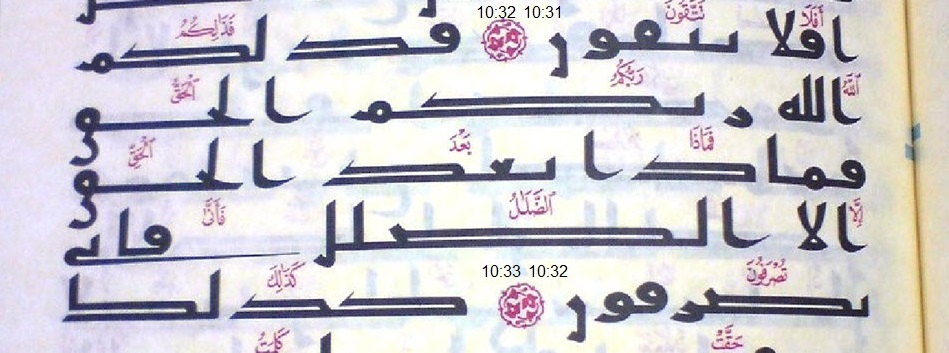 10:32 10:31
أَفَلَا تَتَّقُونَ فَذَٰلِكُمُ
افلا تتقون فذلكم
ٱللَّهُ رَبُّكُمُ ٱلْحَقُّ
الله ربكم الحق
فَمَاذَا بَعْدَ ٱلْحَقِّ
فماذا بعد الحق
إِلَّا ٱلضَّلَٰلُ فَأَنَّىٰ
الا الضلل فانى
10:33 10:32
تُصْرَفُونَ كَذَٰلِكَ
تصرفون كذلك
حَقَّتْ كَلِمَتُ